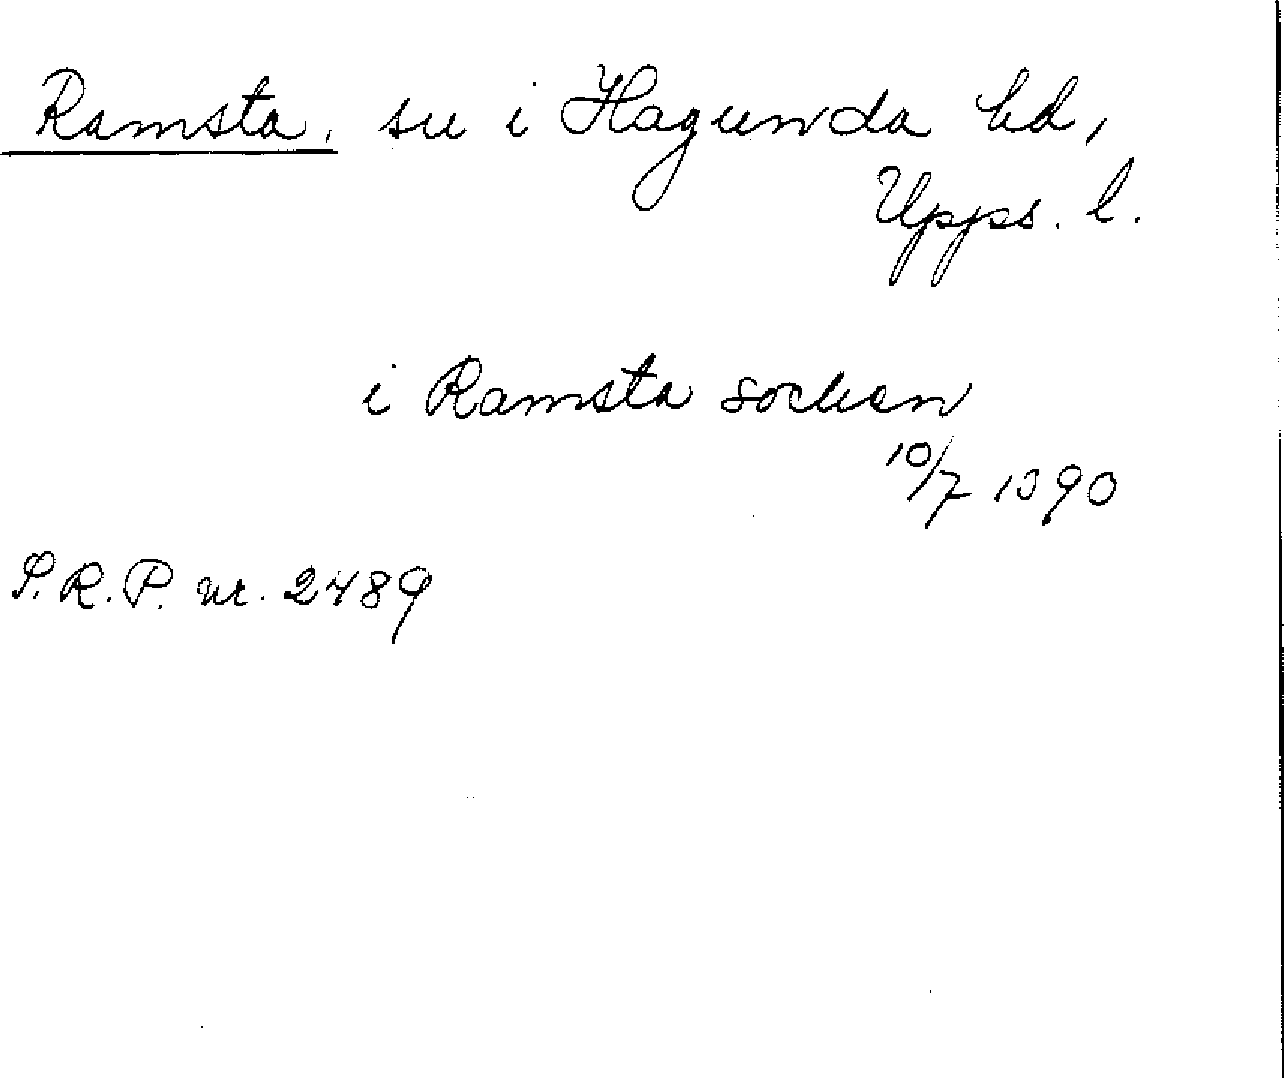 Ramsta, sn i Hagunda hd,
Upps. l.
i Ramsta socken
10/7 1390
S.R.P. nr. 2489